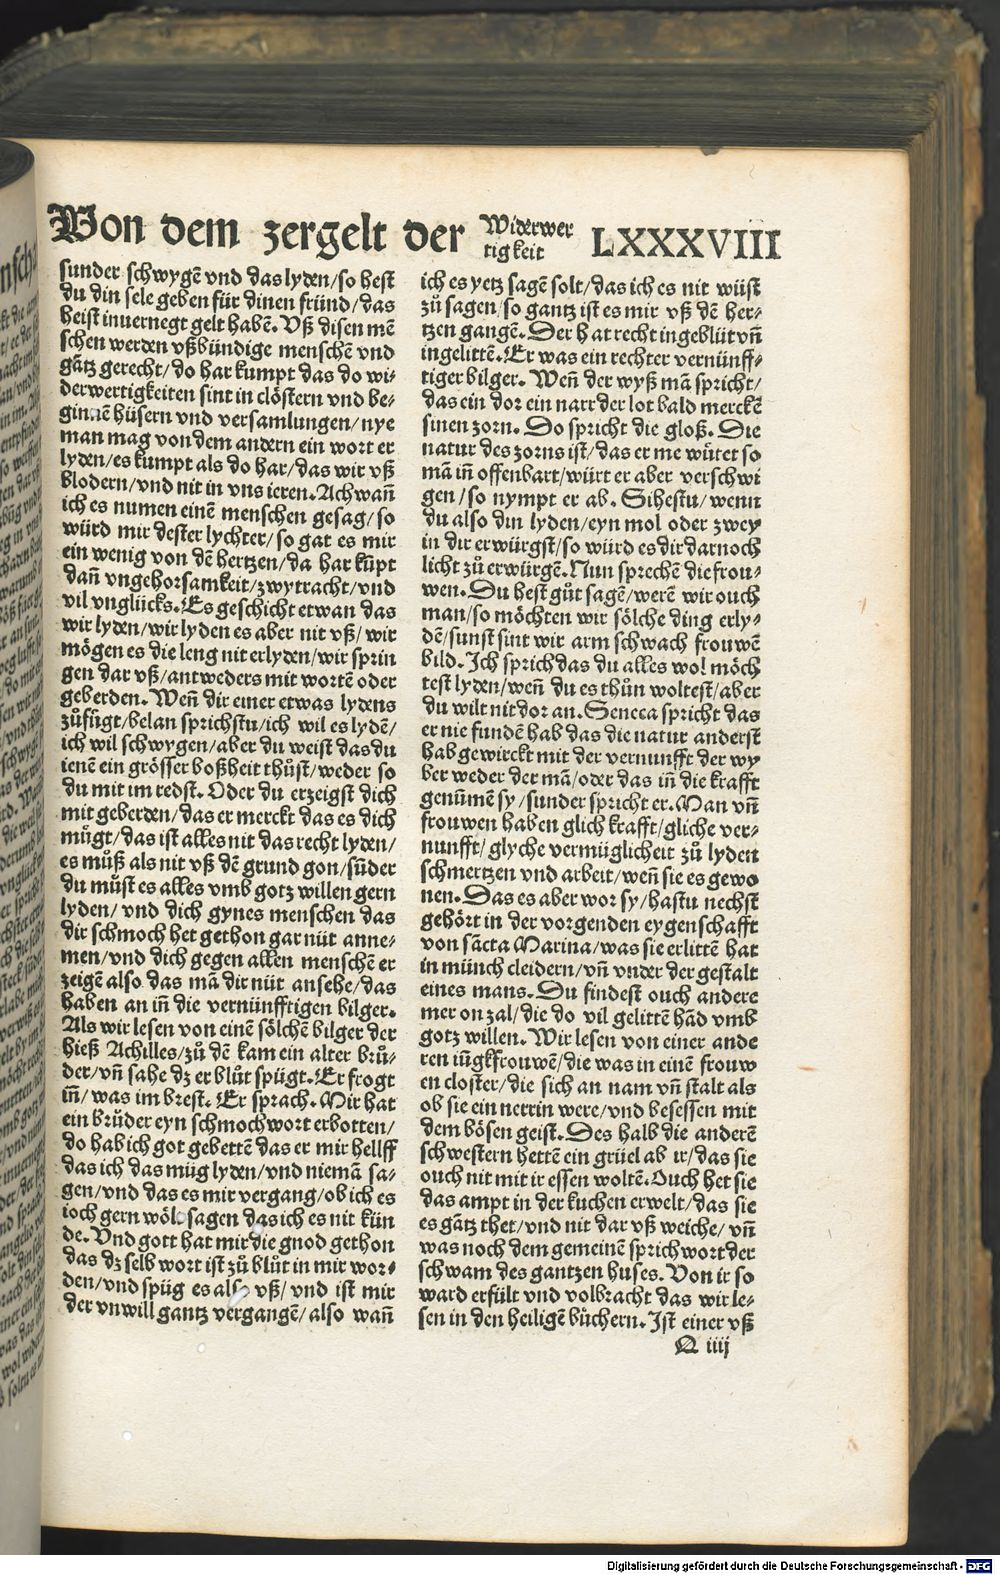 Von dem zergelt der Widerwer
tigkeit LXXXVIII
sunder schwygē vnd das lyden/so hest
du din sele geben für dinen fründ/das
heist inuernegt gelt habē. Vß disen mē
schen werden vßbündige menschē vnd
gātz gerecht/do har kumpt das do wi-
derwertigkeiten sint in clöstern vnd be-
ginnē hüsern vnd versamlungen/nye
man mag von dem andern ein wort er
lyden/es kumpt als do har/das wir vß
blodern/vnd nit in vns ieren. Ach wañ
ich es numen einē menschen gesag/so
würd mir dester lychter/so gat es mir
ein wenig von dē hertzen/da har kūpt
dañ vngehorsamkeit/zwytracht/vnd
vil vnglücks. Es geschicht etwan das
wir lyden/wir lyden es aber nit vß/wir
mögen es die leng nit erlyden/wir sprin
gen dar vß/antweders mit wortē oder
geberden. Weñ dir einer etwas lydens
zůfügt/belan sprichstu/ich wil es lydē/
ich wil schwygen/aber du weist das du
ienē ein grösser boßheit thůst/weder so
du mit im redst. Oder du erzeigst dich
mit geberden/das er merckt das es dich
mügt/das ist alles nit das recht lyden/
es můß als nit vß dē grund gon/sūder
du můst es alles vmb gotz willen gern
lyden/vnd dich gynes menschen das
dir schmoch het gethon gar nüt anne-
men/vnd dich gegen allen menschē er
zeigē also das mā dir nüt ansehe/das
haben an iñ die vernünfftigen bilger.
Als wir lesen von einē sölchē bilger der
hieß Achilles/zů dē kam ein alter brů-
der/vñ sahe dz er blůt spügt. Er frogt
iñ/was im brest. Er sprach. Mir hat
ein brůder eyn schmochwort erbotten/
do hab ich got gebettē das er mir hellff
das ich das müg lyden/vnd niemā sa-
gen/vnd das es mir vergang/ob ich es
ioch gern wöl sagen das ich es nit kün
de. Vnd gott hat mir die gnod gethon
das dz selb wort ist zů blůt in mir wor-
den/vnd spüg es also vß/vnd ist mir
der vnwill gantz vergangē/also wañ
ich es yetz sagē solt/das ich es nit wüst
zů sagen/so gantz ist es mir vß dē her-
tzen gangē. Der hat recht ingeblüt vñ
ingelittē. Er was ein rechter vernünff-
tiger bilger. Weñ der wyß mā spricht/
das ein dor ein narr der lot bald merckē
sinen zorn. Do spricht die gloß. Die
natur des zorns ist/das er me wütet so
mā iñ offenbart/würt er aber verschwi
gen/so nympt er ab. Sihestu/wenn
du also din lyden/eyn mol oder zwey
in dir erwürgst/so würd es dir darnoch
licht zů erwürgē. Nun sprechē die frou-
wen. Du hest gůt sagē/werē wir ouch
man/so möchten wir sölche ding erly-
dē/sunst sint wir arm schwach frouwē
bild. Ich sprich das du alles wol möch
test lyden/weñ du es thůn woltest/aber
du wilt nit dor an. Seneca spricht das
er nie fundē hab das die natur anderst
hab gewirckt mit der vernunfft der wy
ber weder der mā/oder das iñ die krafft
genūmē sy/sunder spricht er. Man vñ
frouwen haben glich krafft/gliche ver-
nunfft/glyche vermüglicheit zů lyden
schmertzen vnd arbeit/weñ sie es gewo
nen. Das es aber wor sy/hastu nechst
gehört in der vorgenden eygenschafft
von sācta Marina/was sie erlittē hat
in münch cleidern/vñ vnder der gestalt
eines mans. Du findest ouch andere
mer on zal/die do vil gelittē hād vmb
gotz willen. Wir lesen von einer ande
ren iūgkfrouwē/die was in einē frouw
en closter/die sich an nam vñ stalt als
ob sie ein nerrin were/vnd besessen mit
dem bösen geist. Des halb die anderē
schwestern hettē ein grüel ab ir/das sie
ouch nit mit ir essen woltē. Ouch het sie
das ampt in der kuchen erwelt/das sie
es gātz thet/vnd nit dar vß weiche/vñ
was noch dem gemeinē sprichwort der
schwam des gantzen huses. Von ir so
ward erfült vnd volbracht das wir le-
sen in den heiligē büchern. Ist einer vß
Q iiij
Digitalisierung gefördert durch die Deutsche Forschungsgemeinschaft - DFG